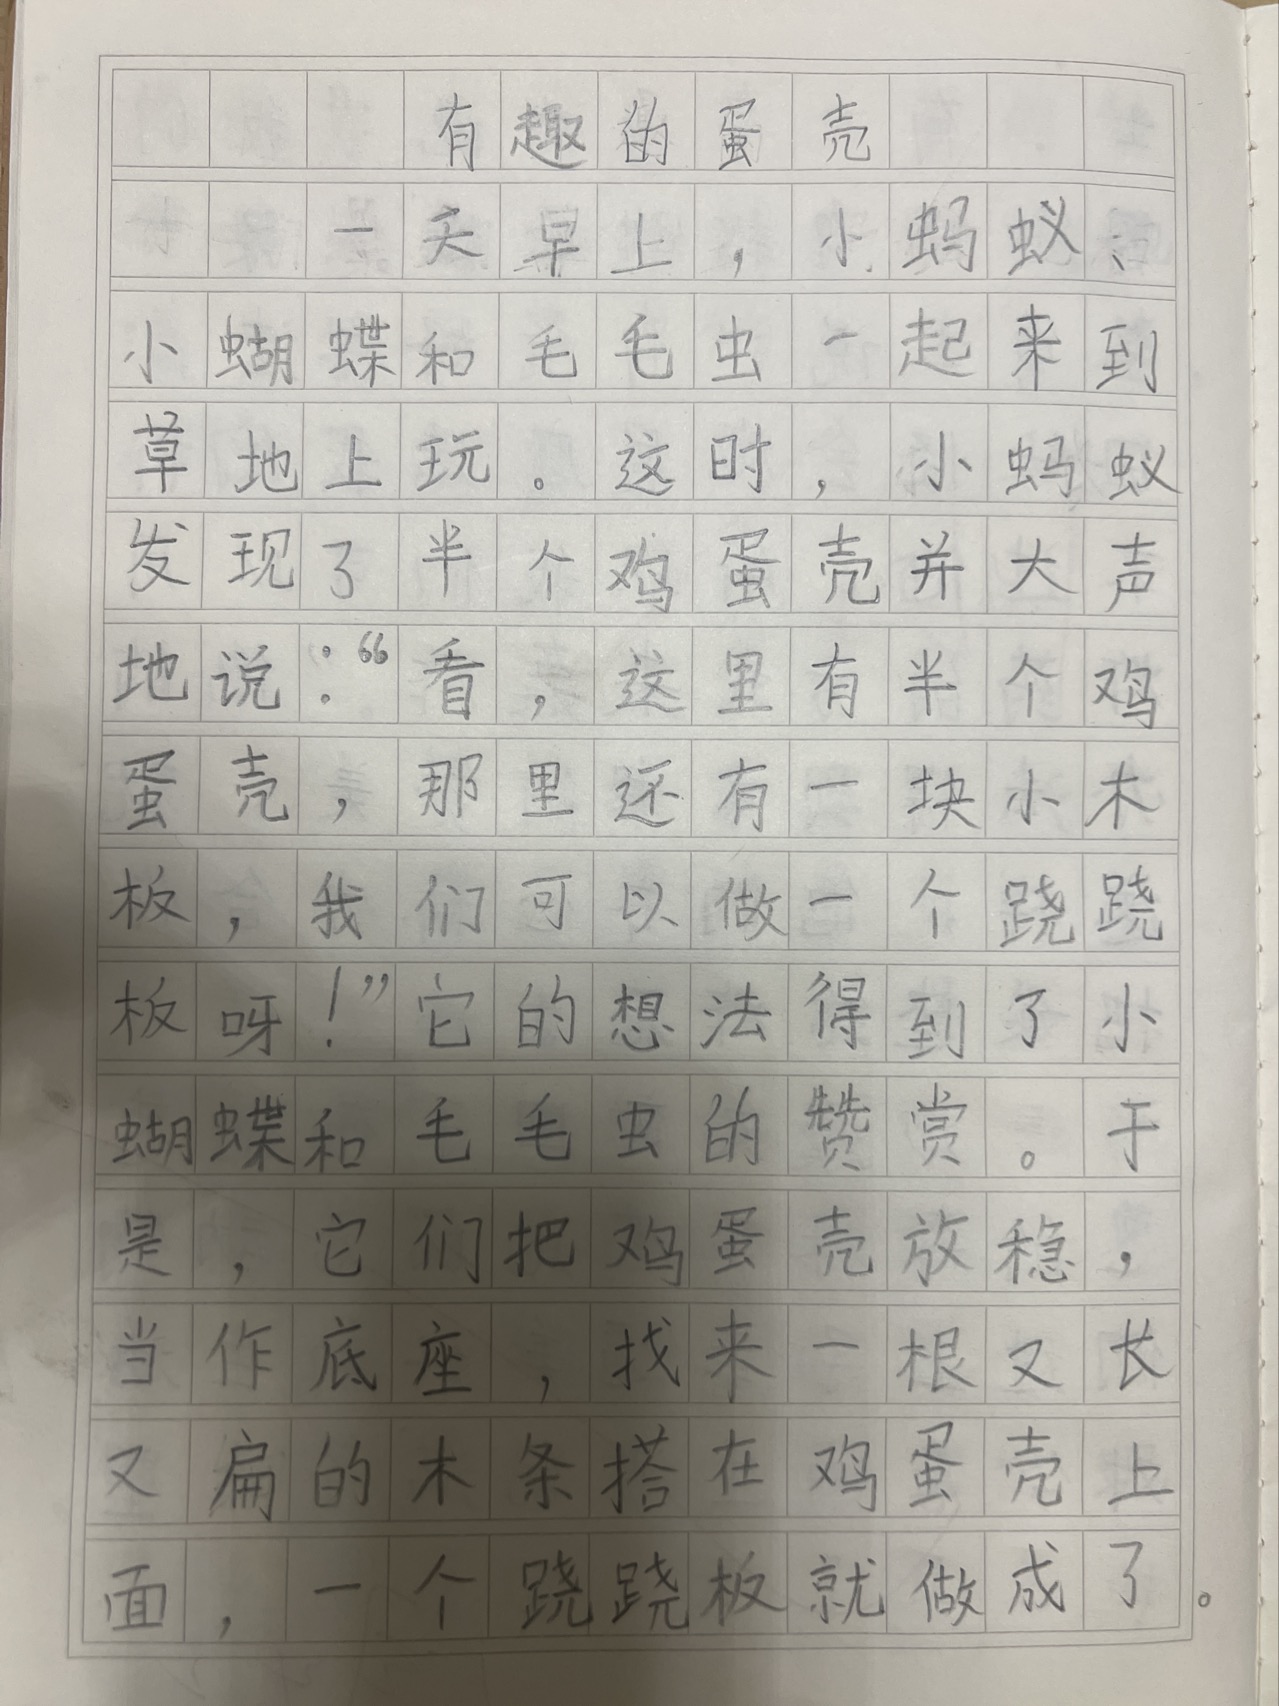 有趣的蛋壳
一天早上，小蚂蚁、
小蝴蝶和毛毛虫一起来到
草地上玩。这时，小蚂蚁
发现了半个鸡蛋壳并大声
地说：“看，这里有半个鸡
蛋壳，那里还有一块小木
板，我们可以做一个跷跷
板呀！”它的想法得到了小
蝴蝶和毛毛虫的赞赏。于
是，它们把鸡蛋壳放稳，
当作底座，找来一根又长
又扁的木条搭在鸡蛋壳上
面，一个跷跷板就做成了。